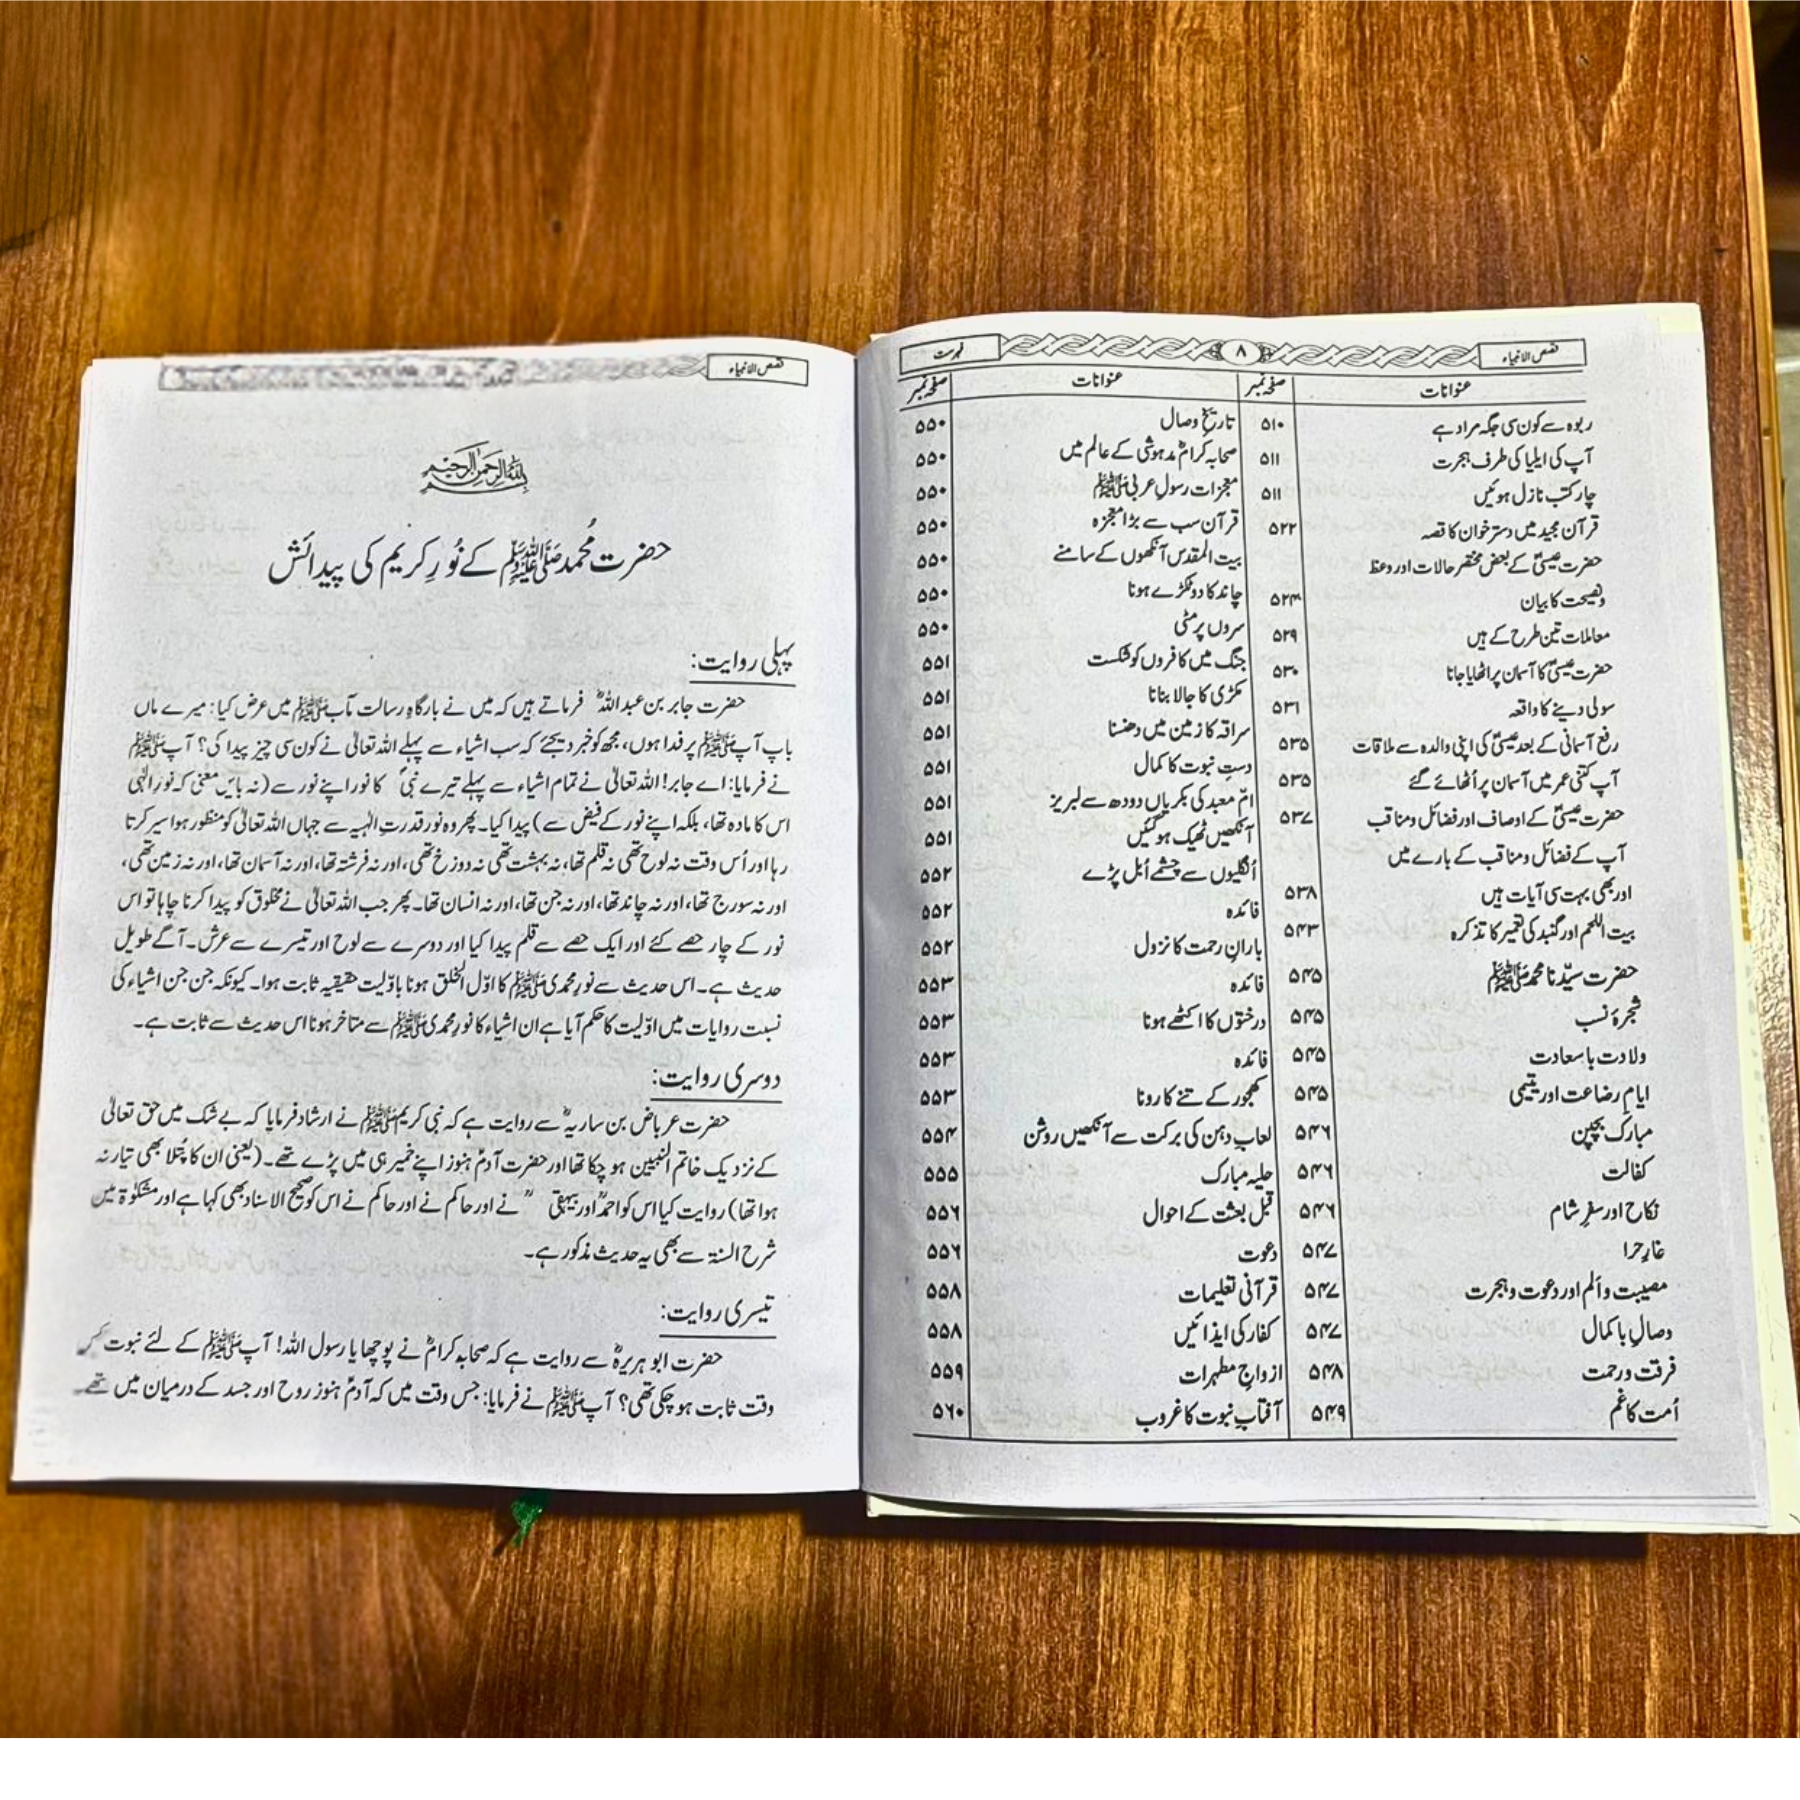 قصص الانبیاء ۸ فہرست
عنوانات صفحہ نمبر عنوانات صفحہ نمبر
ربوہ سے کون سی جگہ مراد ہے ۵۱۰
آپ کی ایلیا کی طرف ہجرت ۵۱۱
چار کتب نازل ہوئیں ۵۱۱
قرآن مجید میں دسترخوان کا قصہ ۵۲۲
حضرت عیسیٰؑ کے بعض مختصر حالات اور وعظ
ونصیحت کا بیان ۵۲۴
معاملات تین طرح کے ہیں ۵۲۹
حضرت عیسیٰؑ کا آسمان پر اٹھایا جانا ۵۳۰
سولی دینے کا واقعہ ۵۳۱
رفع آسمانی کے بعد عیسیٰؑ کی اپنی والدہ سے ملاقات ۵۳۵
آپ کتنی عمر میں آسمان پر اُٹھائے گئے ۵۳۵
حضرت عیسیٰؑ کے اوصاف اور فضائل ومناقب ۵۳۷
آپ کے فضائل ومناقب کے بارے میں
اور بھی بہت سی آیات ہیں ۵۳۸
بیت اللحم اور گنبد کی تعمیر کا تذکرہ ۵۴۳
حضرت سیّدنا محمد ﷺ ۵۴۵
شجرۂ نسب ۵۴۵
ولادت باسعادت ۵۴۵
ایام رضاعت اور یتیمی ۵۴۵
مبارک بچپن ۵۴۶
کفالت ۵۴۶
نکاح اور سفرِ شام ۵۴۶
غارِ حرا ۵۴۷
مصیبت و اَلم اور دعوت و ہجرت ۵۴۷
وصالِ باکمال ۵۴۷
فرقت ورحمت ۵۴۸
اُمت کا غم ۵۴۹
تاریخ وصال ۵۵۰
صحابہ کرامؓ مدہوشی کے عالم میں ۵۵۰
معجزات رسولِ عربی ﷺ ۵۵۰
قرآن سب سے بڑا معجزہ ۵۵۰
بیت المقدس آنکھوں کے سامنے ۵۵۰
چاند کا دو ٹکڑے ہونا ۵۵۰
سروں پر مٹی ۵۵۰
جنگ میں کافروں کو شکست ۵۵۱
مکڑی کا جالا بنانا ۵۵۱
سراقہ کا زمین میں دھنسنا ۵۵۱
دستِ نبوت کا کمال ۵۵۱
امّ معبد کی بکریاں دودھ سے لبریز ۵۵۱
آنکھیں ٹھیک ہوگئیں ۵۵۱
اُنگلیوں سے چشمے اُبل پڑے ۵۵۲
فائدہ ۵۵۲
بارانِ رحمت کا نزول ۵۵۲
فائدہ ۵۵۳
درختوں کا اکٹھے ہونا ۵۵۳
فائدہ ۵۵۳
کھجور کے تنے کا رونا ۵۵۳
لعابِ دہن کی برکت سے آنکھیں روشن ۵۵۴
حلیہ مبارک ۵۵۵
قبل بعثت کے احوال ۵۵۶
دعوت ۵۵۶
قرآنی تعلیمات ۵۵۸
کفار کی ایذائیں ۵۵۸
ازواجِ مطہرات ۵۵۹
آفتابِ نبوت کا غروب ۵۶۰
قصص الانبیاء
بسم اللہ الرحمن الرحیم
حضرت محمد ﷺ کے نُورِ کریم کی پیدائش
پہلی روایت:
حضرت جابر بن عبداللہؓ فرماتے ہیں کہ میں نے بارگاہِ رسالت مآب ﷺ میں عرض کیا: میرے ماں
باپ آپ ﷺ پر فدا ہوں، مجھ کو خبر دیجئے کہ سب اشیاء سے پہلے اللہ تعالیٰ نے کون سی چیز پیدا کی؟ آپ ﷺ
نے فرمایا: اے جابر! اللہ تعالیٰ نے تمام اشیاء سے پہلے تیرے نبیؐ کا نور اپنے نور سے (نہ بایں معنی کہ نور الٰہی
اس کا مادہ تھا، بلکہ اپنے نور کے فیض سے) پیدا کیا۔ پھر وہ نور قدرتِ الٰہیہ سے جہاں اللہ تعالیٰ کو منظور ہوا سیر کرتا
رہا اور اُس وقت نہ لوح تھی نہ قلم تھا، نہ بہشت تھی نہ دوزخ تھی، اور نہ فرشتہ تھا، اور نہ آسمان تھا، اور نہ زمین تھی،
اور نہ سورج تھا، اور نہ چاند تھا، اور نہ جن تھا، اور نہ انسان تھا۔ پھر جب اللہ تعالیٰ نے مخلوق کو پیدا کرنا چاہا تو اس
نور کے چار حصے کئے اور ایک حصے سے قلم پیدا کیا اور دوسرے سے لوح اور تیسرے سے عرش۔ آگے طویل
حدیث ہے۔ اس حدیث سے نورِ محمدی ﷺ کا اوّل الخلق ہونا باوّلیت حقیقیہ ثابت ہوا۔ کیونکہ جن جن اشیاء کی
نسبت روایات میں اوّلیت کا حکم آیا ہے ان اشیاء کا نورِ محمدی ﷺ سے متاخر ہونا اس حدیث سے ثابت ہے۔
دوسری روایت:
حضرت عرباض بن ساریہؓ سے روایت ہے کہ نبی کریم ﷺ نے ارشاد فرمایا کہ بے شک میں حق تعالیٰ
کے نزدیک خاتم النبیین ہو چکا تھا اور حضرت آدمؑ ہنوز اپنے خمیر ہی میں پڑے تھے۔ (یعنی ان کا پُتلا بھی تیار نہ
ہوا تھا) روایت کیا اس کو احمدؒ اور بیہقیؒ نے اور حاکم نے اور حاکم نے اس کو صحیح الاسناد بھی کہا ہے اور مشکوٰۃ میں
شرح السنۃ سے بھی یہ حدیث مذکور ہے۔
تیسری روایت:
حضرت ابوہریرہؓ سے روایت ہے کہ صحابہ کرامؓ نے پوچھا یا رسول اللہ! آپ ﷺ کے لئے نبوت کس
وقت ثابت ہو چکی تھی؟ آپ ﷺ نے فرمایا: جس وقت میں کہ آدمؑ ہنوز روح اور جسد کے درمیان میں تھے۔